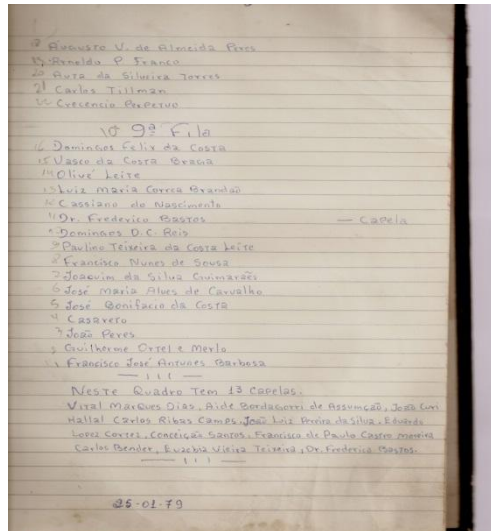 Augusto V. de Almeida Peres
19 Arnoldo P. Franco
20 Aura da Silveira Torres
21 Carlos Tillman
22 Crecencio Perpetuo
10 9ª Fila
16 Domingos Felix da Costa
15 Vasco da Costa Braga
14 Olivé Leite
13 Luiz Maria Correa Brandão
12 Cassiano do Nascimento
11 Dr. Frederico Bastos — Capela
Domingos D. C. Reis
9 Paulino Teixeira da Costa Leite
8 Francisco Nunes de Sousa
7 Joaquim da Silva Guimarães
6 José Maria Alves de Carvalho
5 José Bonifacio da Costa
4 Casareto
3 João Peres
2 Guilherme Ortel e Merla
1 Francisco José Antunes Barbosa
— 1 1 1 —
Neste Quadro Tem 13 Capelas.
Vital Marques Dias, Aide Bordagorri de Assumção, João Curi
Hallal Carlos Ribas Camps, João Luiz Pereira da Silva, Eduardo
Lopez Cortez, Conceição Santos, Francisco de Paulo Castro Moreira
Carlos Bender, Euzebia Vieira Teixeira, Dr. Frederico Bastos.
— 1 1 1 —
25-01-79